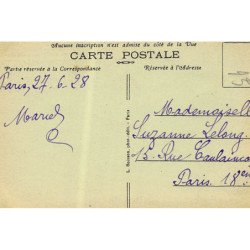 Aucune inscription n'est admise du côté de la Vue
CARTE POSTALE
Partie réservée à la Correspondance
Réservée à l'Adresse
Paris, 27.6.28
Marcel
Mademoisell
Suzanne Lelong
Rue Caulainco
Paris. 18em